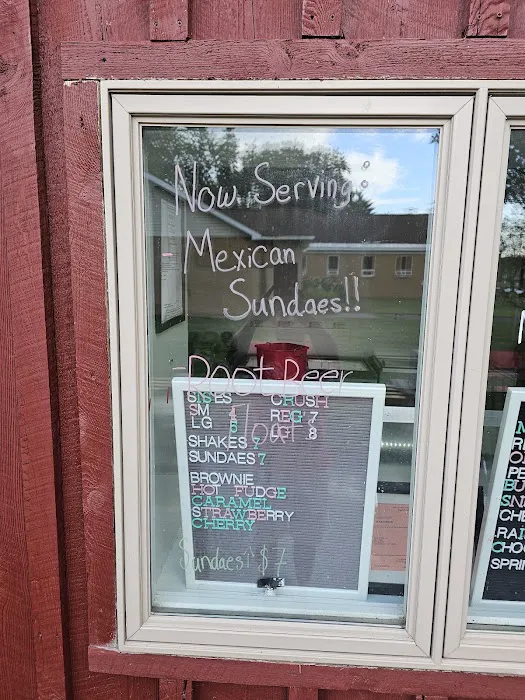 Now Serving:
Mexican
Sundaes!!
-Root Beer
Float
SIZES CRUSH
SM 4 REG 7
LG 6 LGT 8
SHAKES 7
SUNDAES 7
BROWNIE
HOT FUDGE
CARAMEL
STRAWBERRY
CHERRY
Sundaes↑ $7